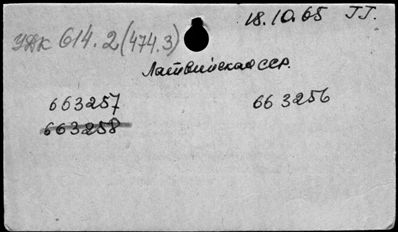 18.10.65 ГГ.
УДК 614.2(474.3)
Латвийская ССР.
663257 663256
663258